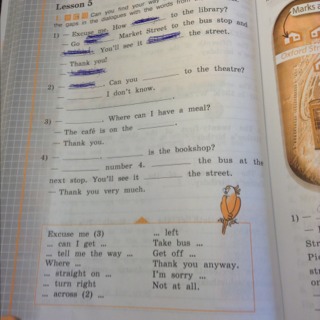 Lesson 5
Can you find your way
the gaps in the dialogues with the words from
1) — Excuse me. How to the library?
— Go Market Street to the bus stop and
. You'll see it the street.
— Thank you!
2) Can you to the theatre?
I don't know.
3) — Where can I have a meal?
— The café is on the .
— Thank you.
4) — is the bookshop?
— number 4. the bus at the
next stop. You'll see it the street.
— Thank you very much.
Excuse me (3)
... can I get ...
... tell me the way ...
Where ...
... straight on ...
... turn right
... across (2) ...
... left
Take bus ...
Get off ...
Thank you anyway.
I'm sorry ...
Not at all.
Marks
Oxford Str
1) —